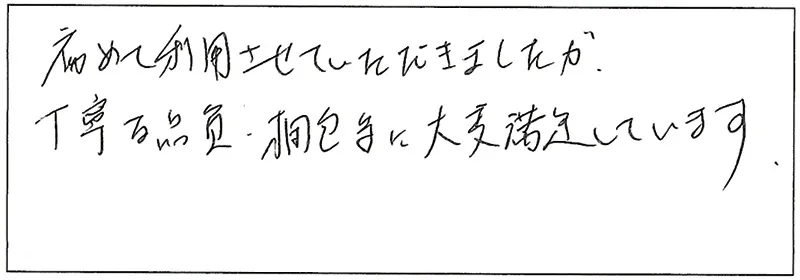 初めて利用させていただきましたが、
丁寧な品質・梱包等に大変満足しています。